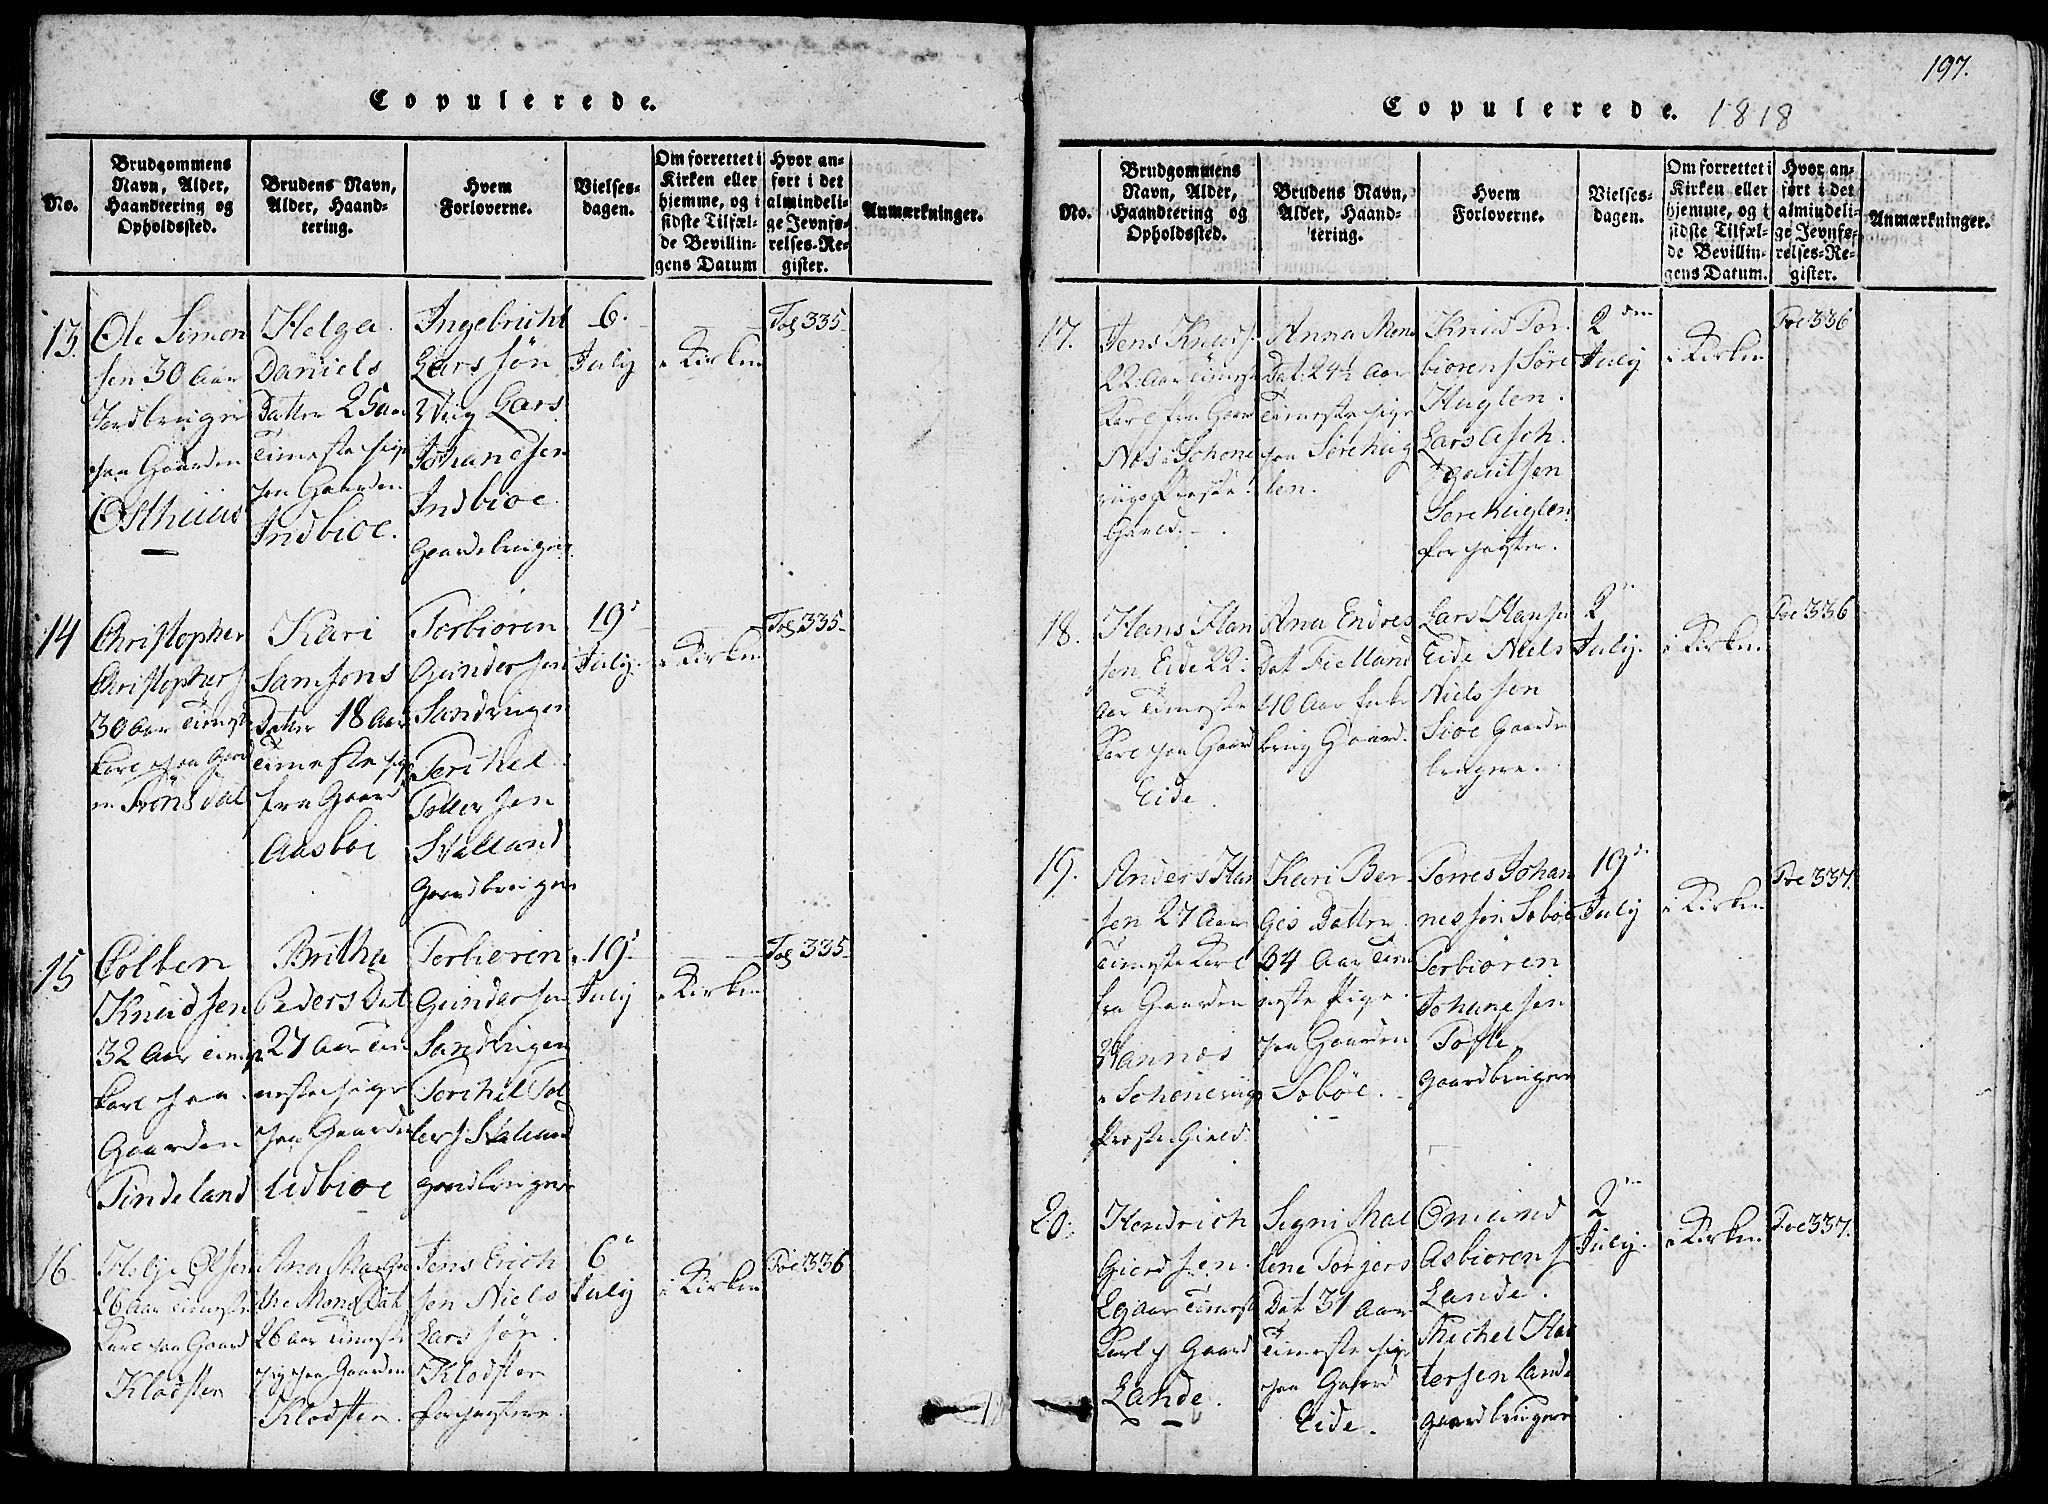 Copulerede.
No.
Brudgommens
Navn, Alder,
Haandtering og
Opholdssted.
Brudens Navn,
Alder, Haand-
tering.
Hvem
Forloverne.
Vielses-
dagen.
Om forrettet i
Kirken eller
hjemme, og i
sidste Tilfæl-
de Bevillin-
gens Datum
Hvor an-
ført i det
almindeli-
ge Jevnfø-
relses-Re-
gister.
Anmærkninger.
13.
Ole Simon
sen 30 Aar
Jordbruger
paa Gaarden
Østhuus
Helga
Daniels
Datter 25 aar
Tieneste pige
paa Gaarden
Indbioe.
Ingebricht
Lars søn
Viig Lars
Johanesen
Indbioe
Gaardebruger
6.
July
i Kirken
Fol 335
14
Christopher
Christophers
30 Aar Tieneste
Karl paa Gaard
en Svønsdal
Kari
Samsons
Datter 18 Aar
Tieneste pige
fra Gaard
Aasbøe
Torbioren
Gundersen
Sandvigen
Torchel
Toller sen
Svalland
Gaardbruger
19
July.
i Kirken
Fol 335
15
Colben
Knudsen
32 Aar Tieneste
karl paa
Gaarden
Tindeland
Britha
Peders Dat
27 Aar Tie
neste pige
paa Gaarden
Udbioe
Torbioren
Gundersen
Sandvigen
Torchel Tol
lers Svalland
gaardbrugere
19
July
i Kirken
Fol 335
16.
Helje Olsen
26 Aar Tieneste
Karl paa Gaard
Klodster
Ana Margre
the Mons Dat
26 aar Tieneste
pig paa Gaarden
Klodster.
Jens Erich
sen Niels
Lars søn
Klodster
6
July
i Kirken
Foe 336
197.
Copulerede. 1818
No.
Brudgommens
Navn, Alder,
Haandtering og
Opholdssted.
Brudens Navn,
Alder, Haand-
tering.
Hvem
Forloverne.
Vielses-
dagen.
Om forrettet i
Kirken eller
hjemme, og i
sidste Tilfæl-
de Bevillin-
gens Datum.
Hvor an-
ført i det
almindeli-
ge Jevnfø-
relses-Re-
gister.
Anmærkninger.
17.
Jens Knuds
22 Aar Tieneste
Karl fra Gaar
Nes i Schone
viigs Præste
Gield.
Anna Mons
Dat: 24½ Aar
Tieneste pige
paa Sørehug
len.
Knud Tor
biorens Søre
Huglen.
Lars Asch
gautsen
Sørehuglen
2 den
July
i Kirken
Foe 336
18.
Hans Han
sen Eide 22
Aar Tieneste
Karl paa Gaard
Eide.
Ana Endres
Dat Fielland
40 Aar
brug Gaard.
Lars Hansen
Eide Niels
Nielssen
Sioe Gaarde
brugere.
2
July.
i Kirken
Foe 336
19.
Anders Han
sen 27 Aar
Tieneste Karl
fra Gaarden
i Schoneviigs
Præste Gield.
Kari Ber
Gis Datter
34 Aar Tie
neste Pige
paa Gaarden
Søbøe.
Torres Johan
nessøn Søbøe
Torbioren
Johanesen
Tofte
gaardbrugere
19
July
i Kirken
Foe 337.
20.
Hendrich
Giersen
Karl p Gaard
Lande.
Signi Mal
lene Torjers
Dat 31 Aar
Tieneste pige
paa Gaard
Eide.
Omund
Asbiorens
Lande.
Michel Hal
torsen Lande
gaardbrugere
2
July.
i Kirken
Foe 337.